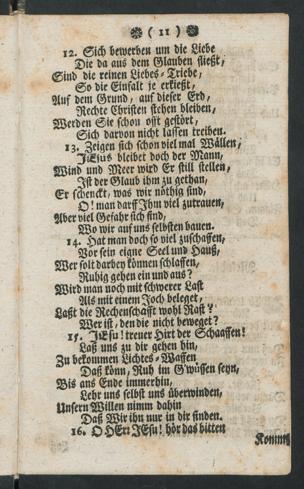 ( 11 )
12. Sich bewerben um die Liebe
Die da aus dem Glauben fließt,
Sind die reinen Liebes-Triebe,
So die Einfalt je erkießt,
Auf dem Grund, auf dieser Erd,
Rechte Christen stehen bleiben,
Werden Sie schon offt gestört,
Sich darvon nicht lassen treiben.
13. Zeigen sich schon viel mal Wällen,
JEsus bleibet doch der Mann,
Wind und Meer wird Er still stellen,
Ist der Glaub ihm zu gethan,
Er schenckt, was wir nöthig sind,
O! man darff Ihm viel zutrauen,
Aber viel Gefahr sich find,
Wo wir auf uns selbsten bauen.
14. Hat man doch so viel zuschaffen,
Vor sein eigne Seel und Hauß,
Wer solt darbey können schlaffen,
Ruhig gehen ein und aus?
Wird man noch mit schwerer Last
Als mit einem Joch beleget,
Laßt die Rechenschafft wohl Rast?
Wer ist, den die nicht beweget?
15. JEsu! treuer Hirt der Schaaffen!
Laß uns zu dir gehen hin,
Zu bekommen Lichtes-Waffen
Daß könn, Ruh im G'wüssen seyn,
Bis ans Ende immerhin,
Lehr uns selbst uns überwinden,
Unsern Willen nimm dahin
Daß Wir ihn nur in dir finden.
16. O HErr JEsu! hör das bitten
Kommt